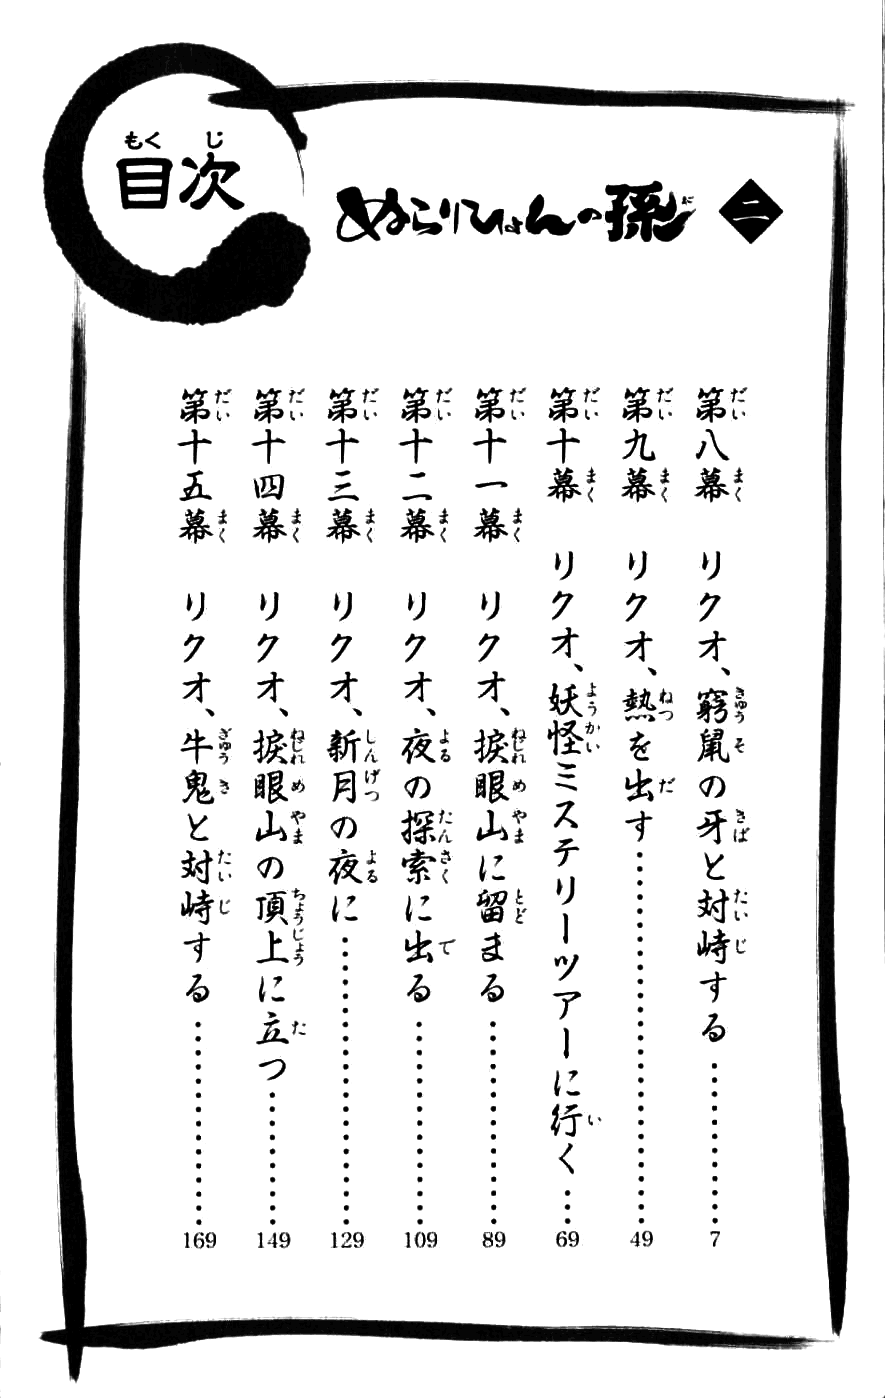 目次
もくじ
ぬらりひょんの孫
二
第八幕 リクオ、窮鼠の牙と対峙する……………7
だいまくきゅうそきばたいじ
第九幕 リクオ、熱を出す……………49
だいまくねつだ
第十幕 リクオ、妖怪ミステリーツアーに行く……69
だいまくようかいい
第十一幕 リクオ、捩眼山に留まる……………89
だいまくねじれめやまとど
第十二幕 リクオ、夜の探索に出る……………109
だいまくよるたんさくで
第十三幕 リクオ、新月の夜に……………129
だいまくしんげつよる
第十四幕 リクオ、捩眼山の頂上に立つ……………149
だいまくねじれめやまちょうじょうた
第十五幕 リクオ、牛鬼と対峙する……………169
だいまくぎゅうきたいじ